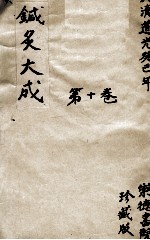 清道光癸巳年
鍼灸大成
第十卷
崇德書院
珍藏版